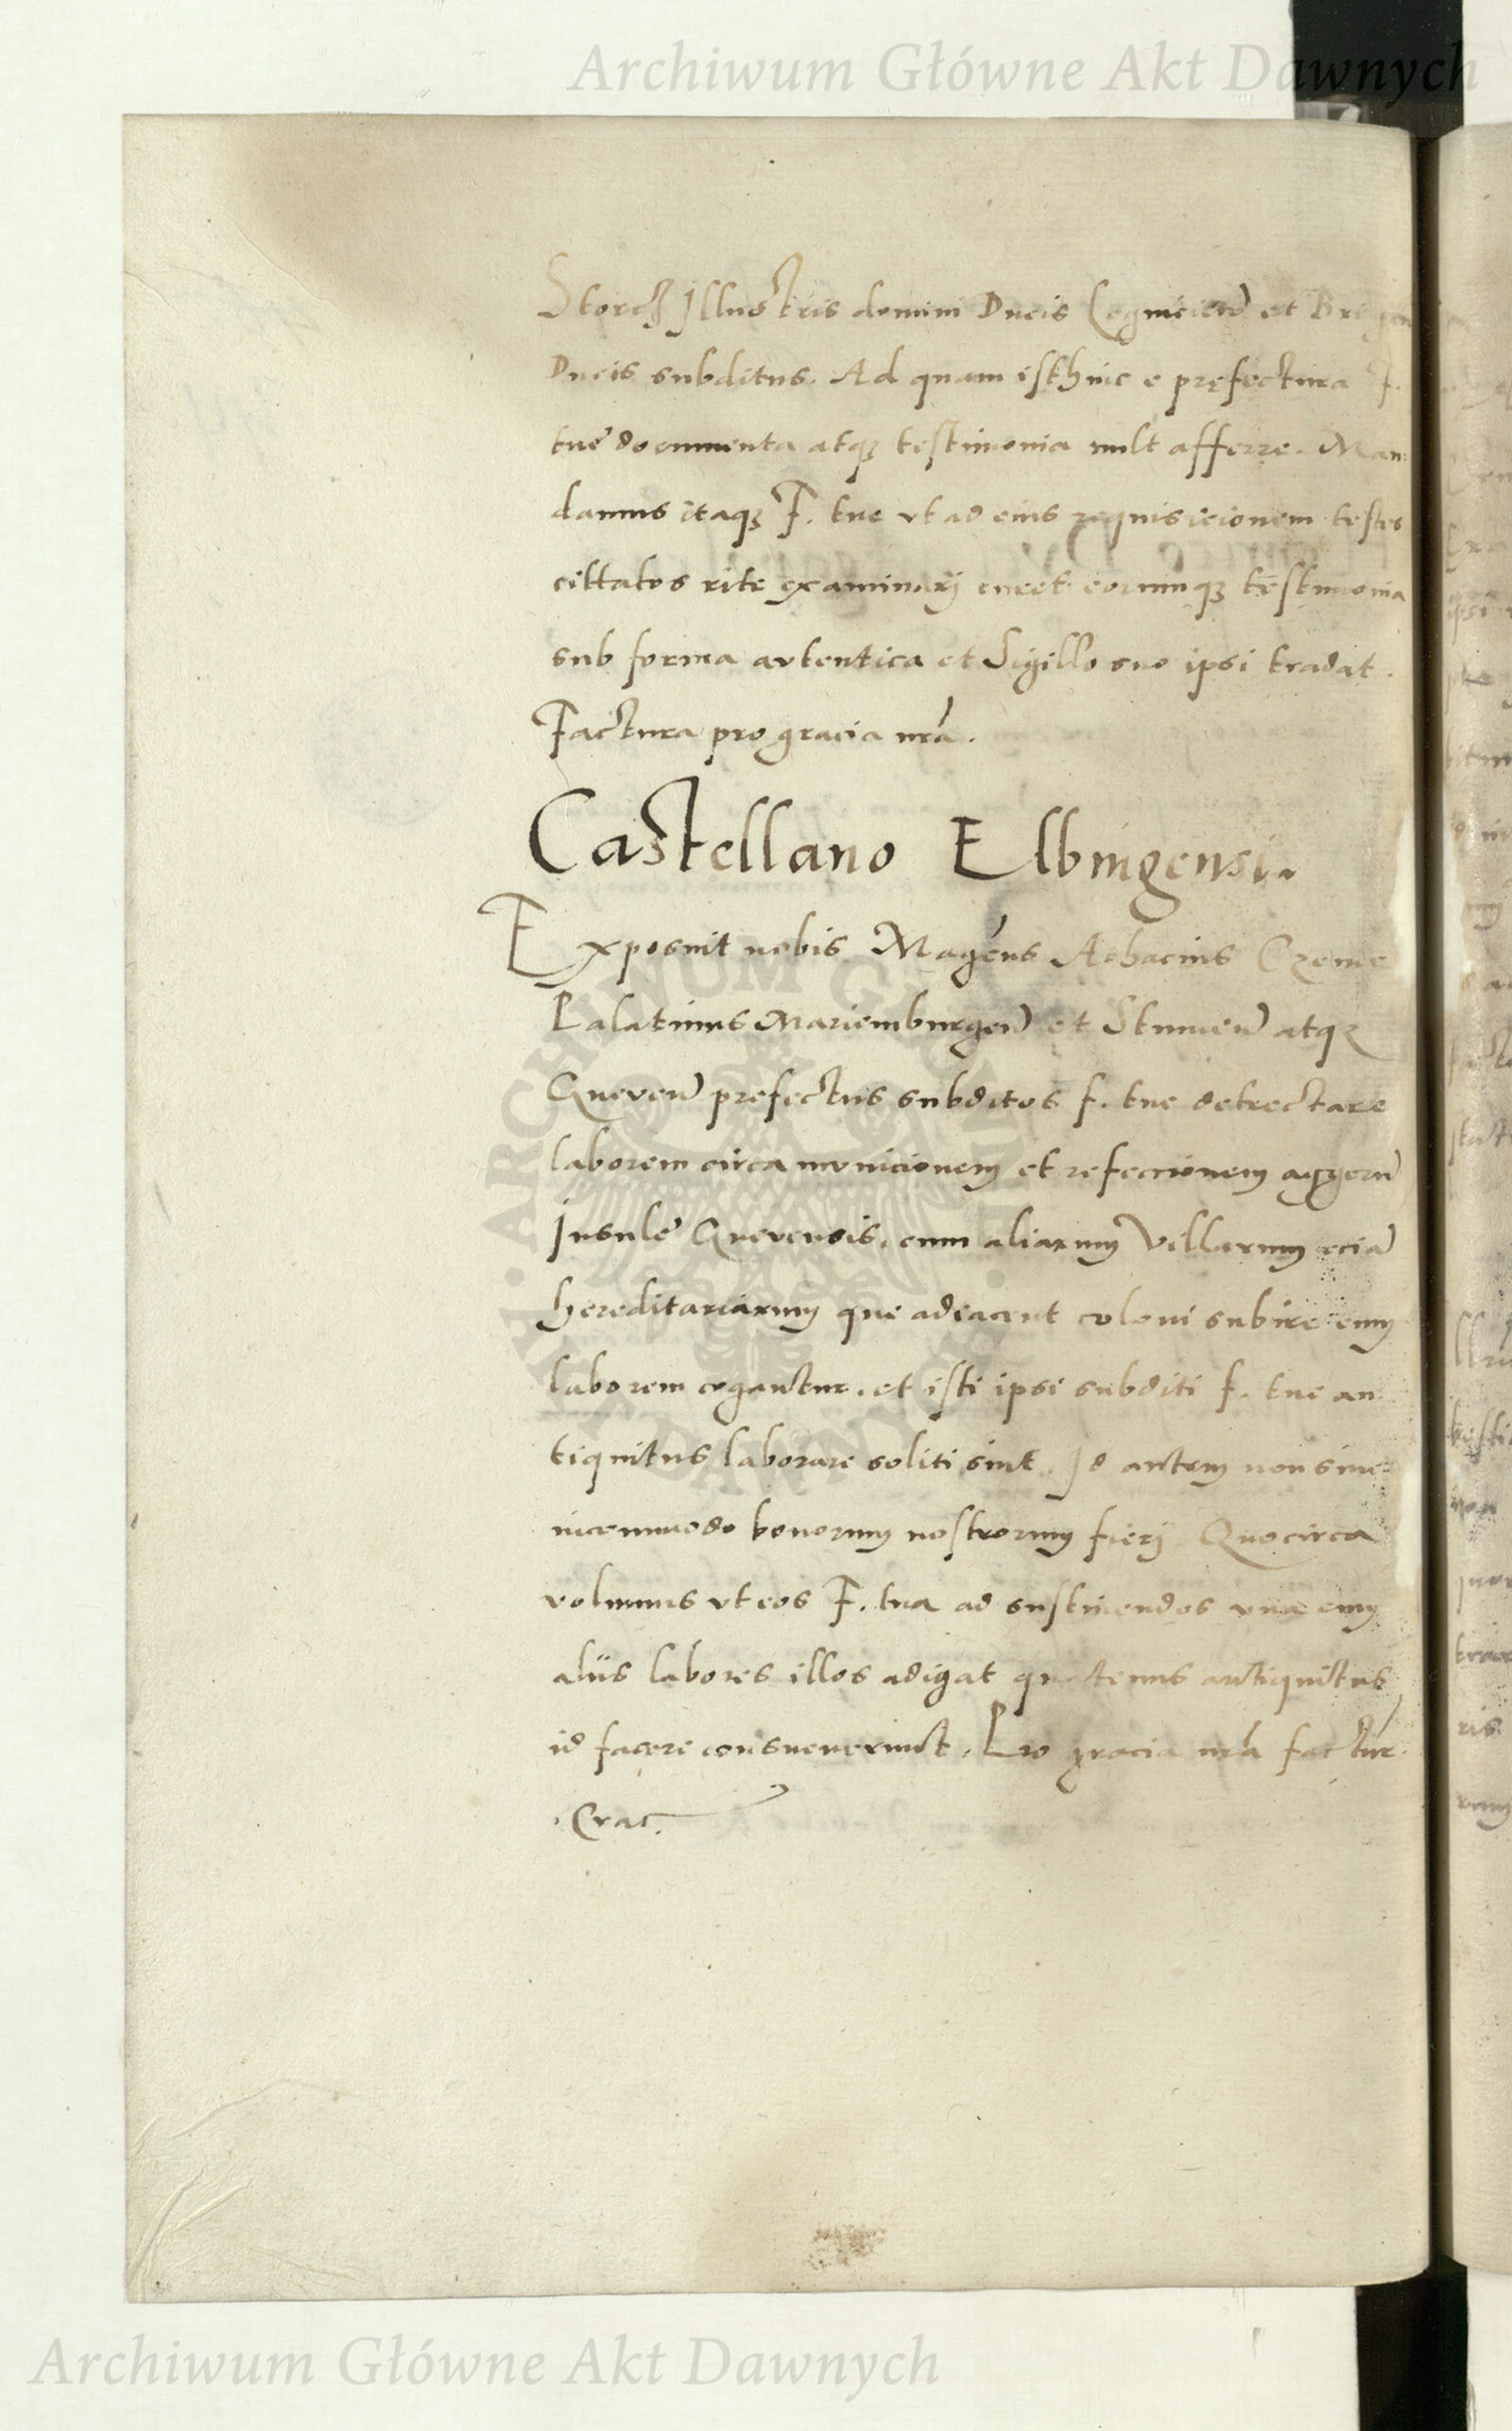 Archiwum Główne Akt Dawnych
Storch Illustris domini Ducis Legnicien et Bregen
Ducis subditus. Ad quam isthinc e prefectura F.
tue documenta atq testimonia vult afferre. Man
damus itaq F. tue vt ad eius requisicionem testes
cittatos rite examinarj curet eorumq testimonia
sub forma autentica et Sigillo suo ipsi tradat.
Factura pro gracia nra.
Castellano Elbingensi.
Exposuit nobis Magcus Achacius Czeme
Palatinus Mariemburgen et Stumen atq
Gneven prefectus subditos f. tue detrectare
laborem circa municionem et refeccionem aggeru
Insule Gnevensis, cum aliarum Villarum ecia
hereditariarum que adiacent coloni subire eum
laborem cogantur. et isti ipsi subditi f. tue an
tiquitus laborare soliti sint. Id autem non sine
incommodo bonorum nostrorum fierj. Quocirca
volumus vt eos F. tua ad sustinendos vna cum
aliis labores illos adigat quatenus antiquitus
id facere consueverunt. Pro gracia nra factur.
Crac.
ARCHIWUM GŁÓWNE AKT DAWNYCH
Archiwum Główne Akt Dawnych